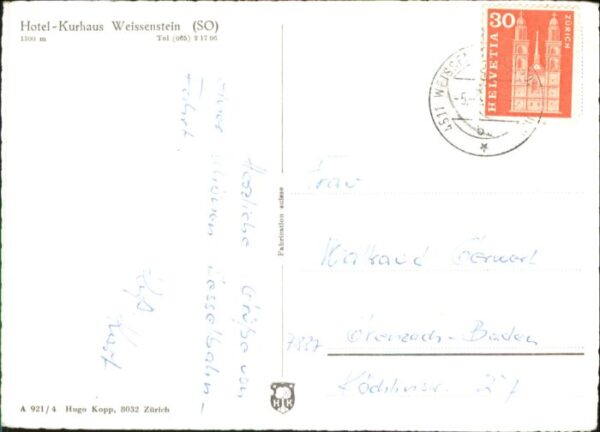 Hotel-Kurhaus Weissenstein (SO)
1300 m Tel (065) 2 17 06
30
HELVETIA
ZÜRICH
4511 WEISSEN
-5.-
Herzliche Grüße von
einer schönen Sesselbahn-
Fahrt
Fabrication suisse
Frau
7887
Grenzach-Baden
27
HK
A 921/4 Hugo Kopp, 8032 Zürich